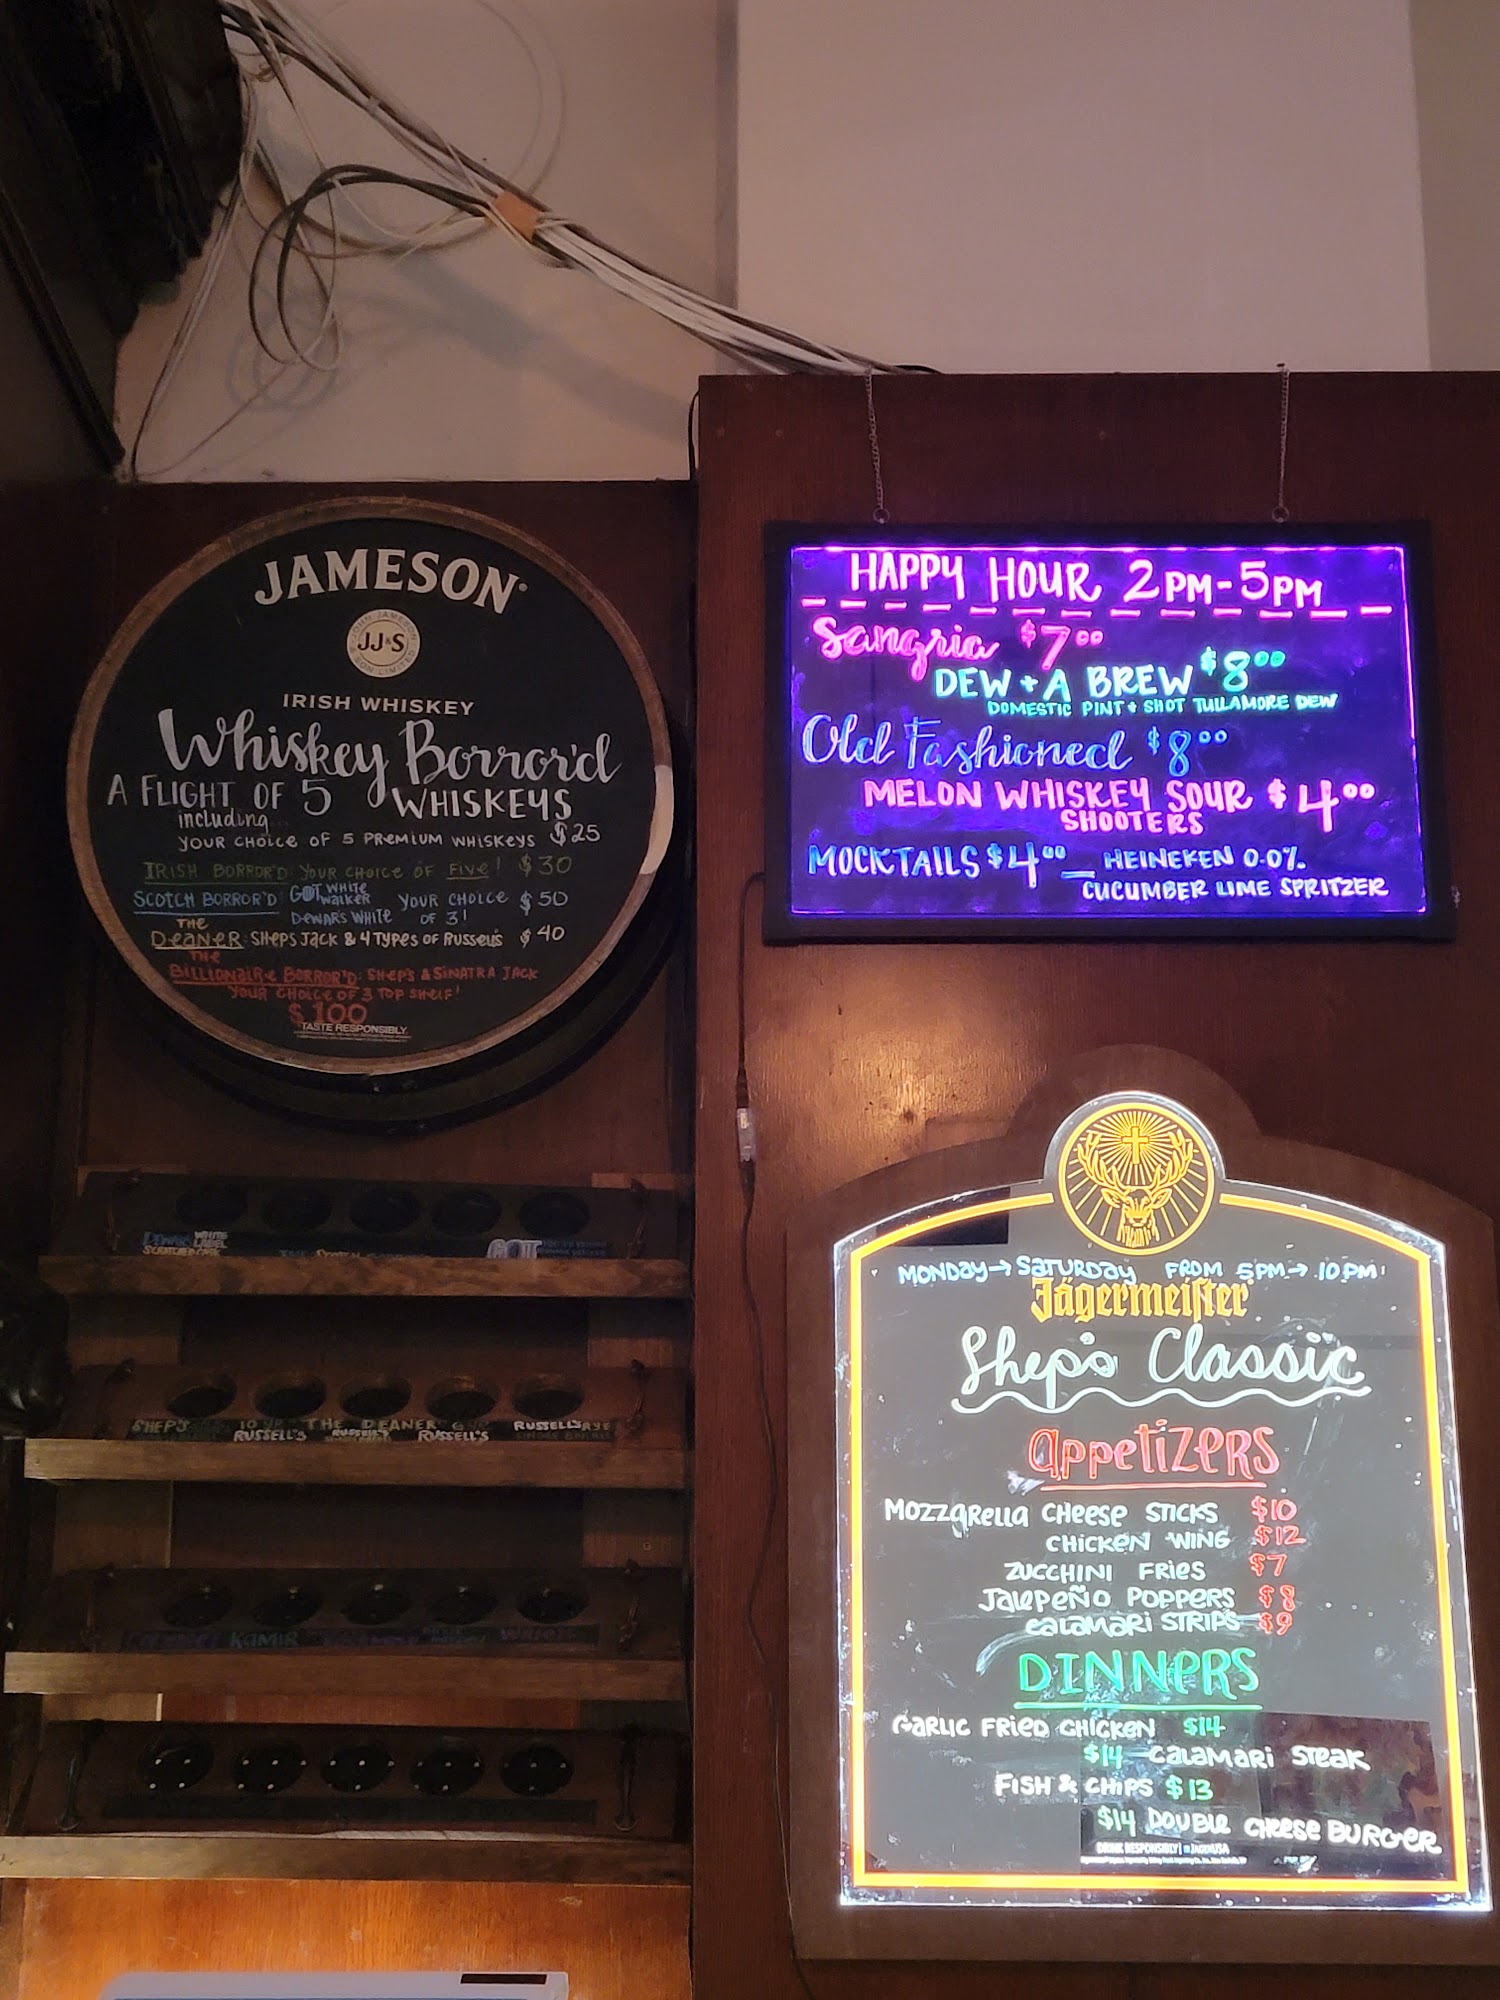 JAMESON
JOHN JAMESON
JJ&S
SON LIMITED
IRISH WHISKEY
Whiskey Borror'd
A FLIGHT OF 5 WHISKEYS
including...
YOUR CHOICE OF 5 PREMIUM WHISKEYS $25
IRISH BORROR'D: YOUR CHOICE OF FIVE! $30
SCOTCH BORROR'D GOT WHITE WALKER DEWARS WHITE YOUR CHOICE OF 3! $50
THE DEANER: SHEPS JACK & 4 TYPES OF RUSSELLS $40
THE
BILLIONAIRE BORROR'D: SHEP'S & SINATRA JACK
YOUR CHOICE OF 3 TOP SHELF!
$100
TASTE RESPONSIBLY.
HAPPY HOUR 2PM-5PM
Sangria $7.00
DEW + A BREW $8.00
DOMESTIC PINT + SHOT TULLAMORE DEW
Old Fashioned $8.00
MELON WHISKEY SOUR $4.00
SHOOTERS
MOCKTAILS $4.00 — HEINEKEN 0.0%
CUCUMBER LIME SPRITZER
MONDAY → SATURDAY FROM 5PM → 10PM
Jägermeister
Shep's Classic
APPETIZERS
MOZZARELLA CHEESE STICKS $10
CHICKEN WING $12
ZUCCHINI FRIES $7
JALEPEÑO POPPERS $8
CALAMARI STRIPS $9
DINNERS
GARLIC FRIED CHICKEN $14
$14 CALAMARI STEAK
FISH & CHIPS $13
$14 DOUBLE CHEESE BURGER
DRINK RESPONSIBLY
WHITE
LABEL
GOT
SHEP'S 10 YR THE DEANER
RUSSELL'S RUSSELL'S RUSSELL'S RUSSELL'S RYE
KAMIR